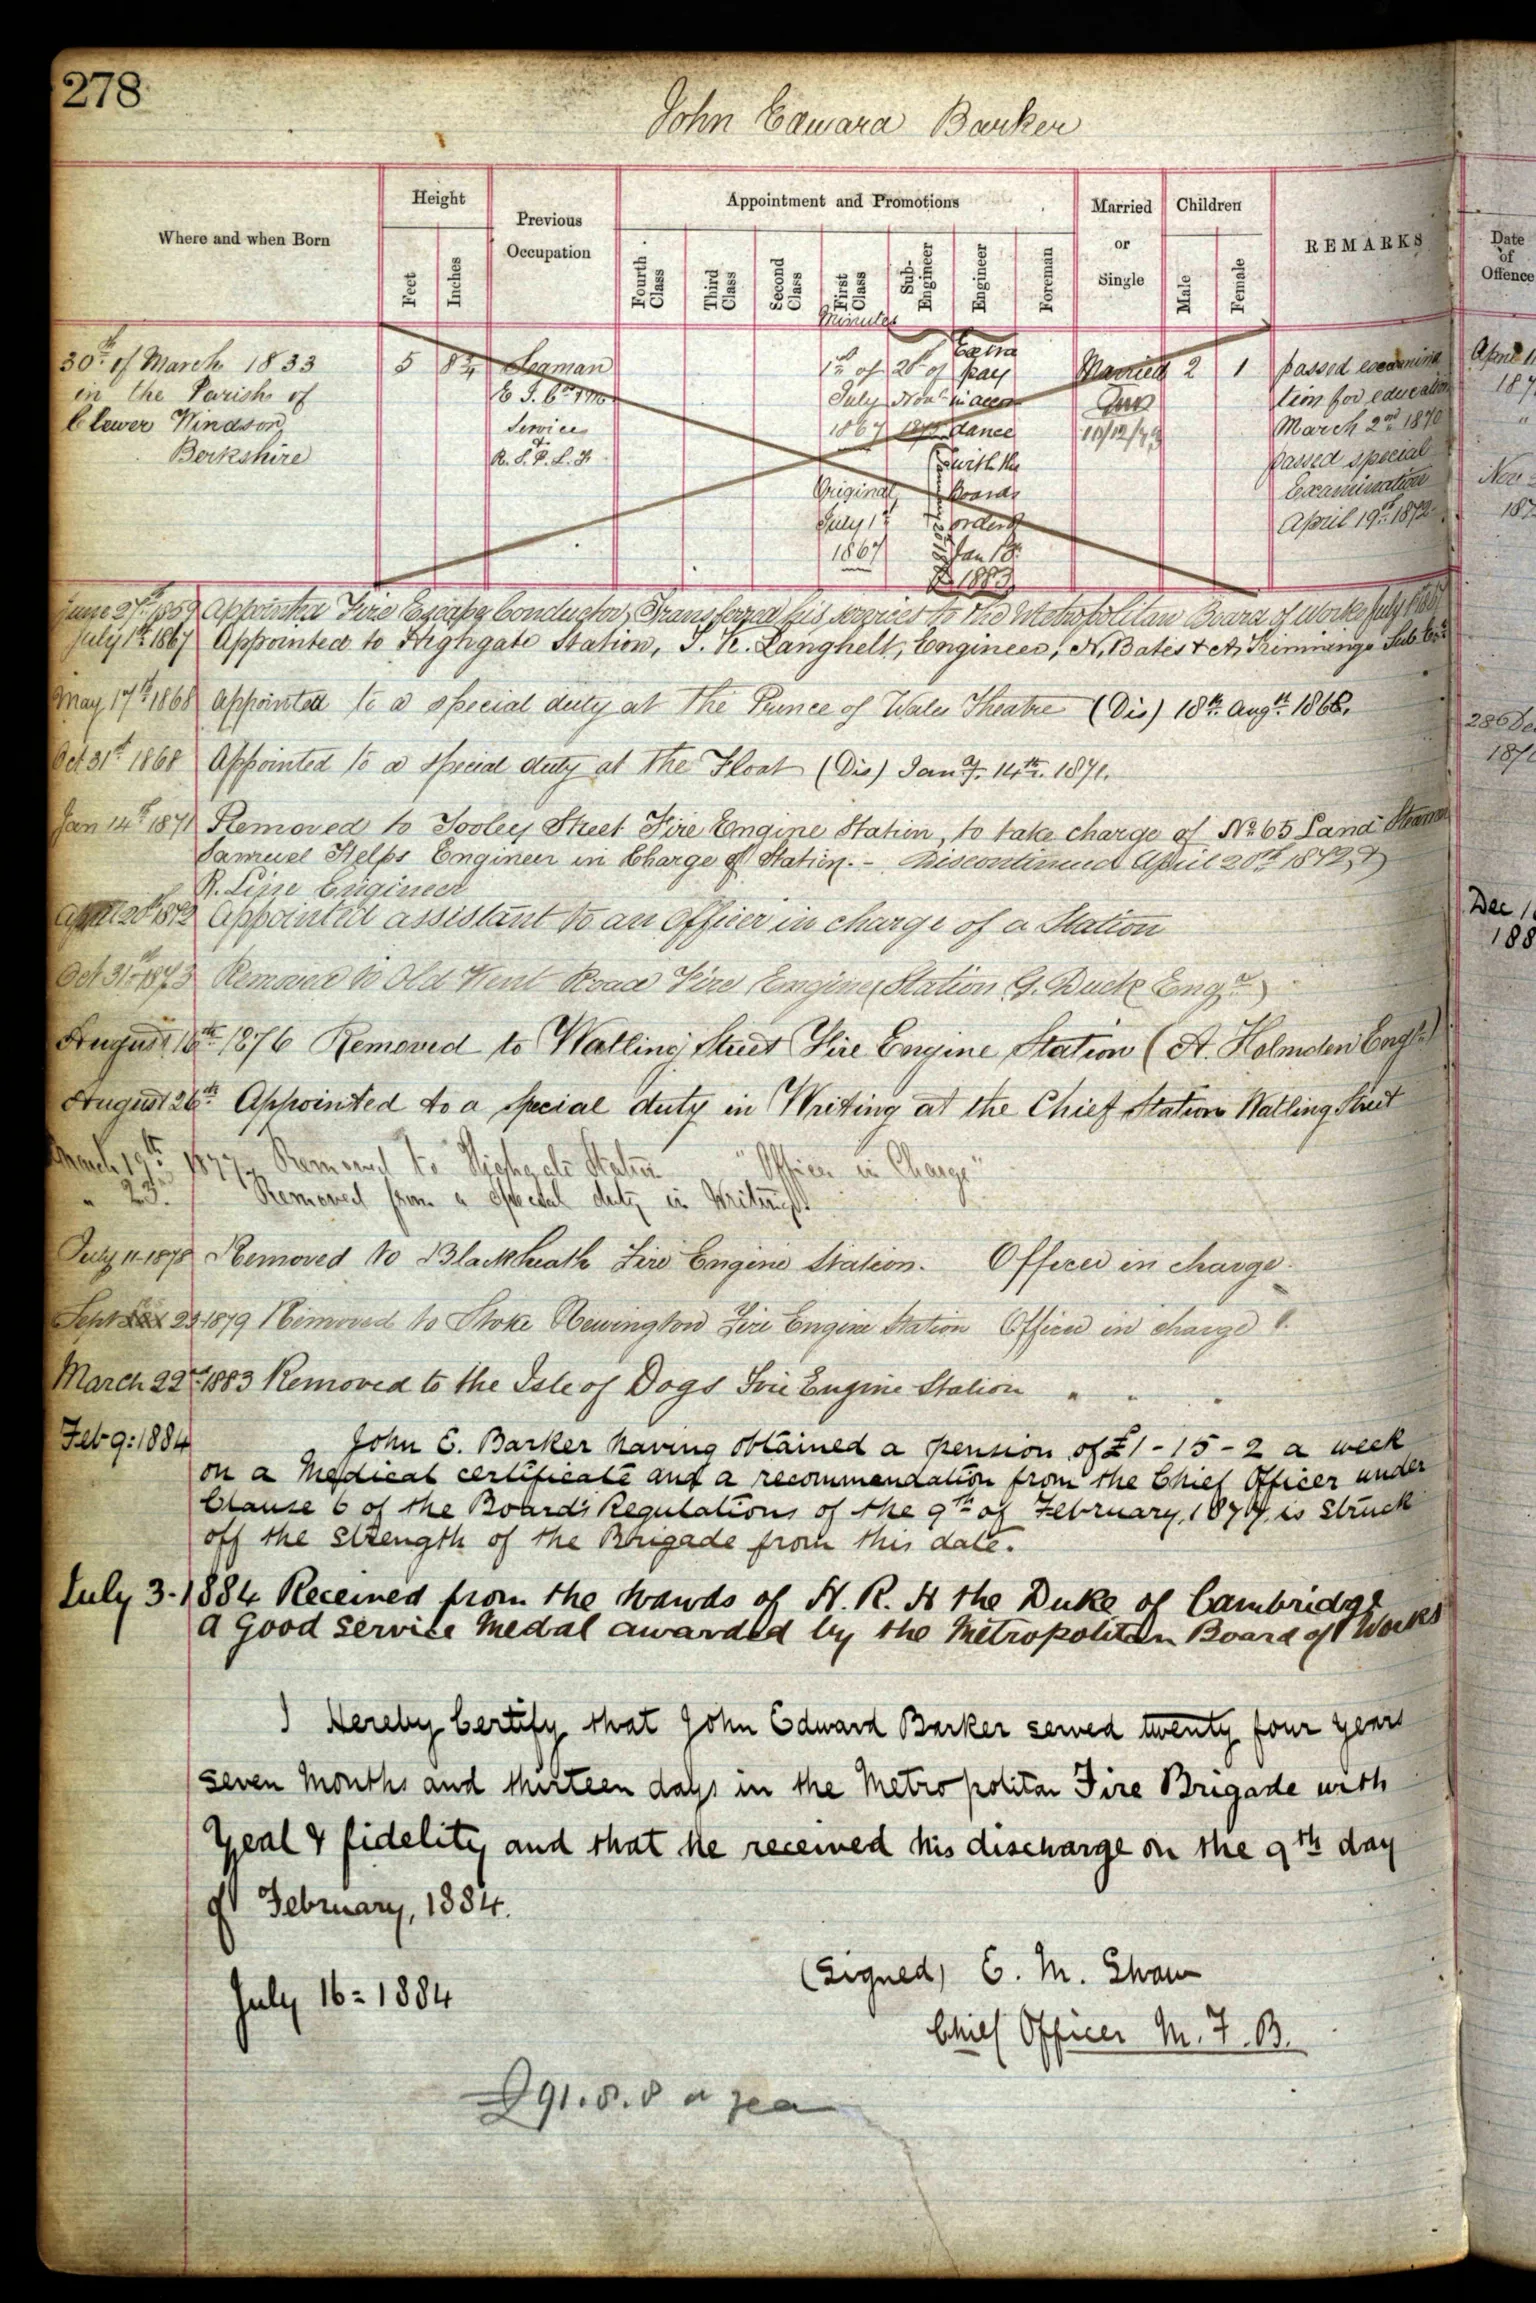 278
John Edward Barker
Where and when Born
Height
Feet
Inches
Previous
Occupation
Appointment and Promotions
Fourth Class
Third Class
Second Class
First Class
Sub-Engineer
Engineer
Foreman
Married
or
Single
Children
Male
Female
REMARKS
Date
of
Offence
Minutes
30th of March 1833
in the Parish of
Clewer Windson
Berkshire
5
8¾
Seaman
Service
&
R. S. P. L. F.
1st of
July
1867
Original
July 1st
1867
26th of
Novr
1873
Extra
pay
in accor
dance
with the
Boards
orders
Jan 18th
1883
Married
10/12/79
2
1
passed examina
tion for education
March 2nd 1870
passed special
Examination
April 19th 1872
June 27th 1859 Appointed Fire Escape Conductor, Transferred his services to the Metropolitan Board of Works July 1st 1867
July 1st 1867 Appointed to Highgate Station, S. K. Langhelt, Engineer, N. Bates & A.
May 17th 1868 Appointed to a special duty at The Prince of Wales Theatre (Dis) 18th Augst 1868.
Oct 31st 1868 Appointed to a special duty at the Float (Dis) Jany. 14th. 1871.
Jan 14th 1871 Removed to Tooley Street Fire Engine Station, to take charge of No 65 Land Steamer
Samuel Helps Engineer in Charge of Station. - Discontinued April 20th 1872
R. Engineer
April 20th 1872 Appointed assistant to an Officer in charge of a Station
Oct 31st 1873 Removed to Old Kent Road Fire Engine Station (G. Duck Engr)
August 16th 1876 Removed to Watling Street Fire Engine Station (A. Holmden Engr)
August 26th Appointed to a special duty in Writing at the Chief Station Watling Street
March 19th 1877 Removed to Highgate Station "Officer in Charge"
" 23. Removed from a special duty in Writing.
July 11-1878 Removed to Blackheath Fire Engine Station. Officer in charge.
Sept 23 1879 Removed to Stoke Newington Fire Engine Station Officer in charge
March 22nd 1883 Removed to the Isle of Dogs Fire Engine Station " " "
Feb 9: 1884 John E. Barker having obtained a pension of £1-15-2 a week
on a Medical certificate and a recommendation from the Chief Officer under
Clause 6 of the Board's Regulations of the 9th of February, 1877, is struck
off the strength of the Brigade from this date.
July 3-1884 Received from the hands of H. R. H the Duke of Cambridge
A Good Service Medal awarded by the Metropolitan Board of Works
I Hereby Certify that John Edward Barker served twenty four years
seven Months and thirteen days in the Metropolitan Fire Brigade with
Zeal & fidelity and that he received his discharge on the 9th day
of February, 1884.
(Signed) E. M. Shaw
July 16= 1884
Chief Officer M. F. B.
£91.8.8 a yea